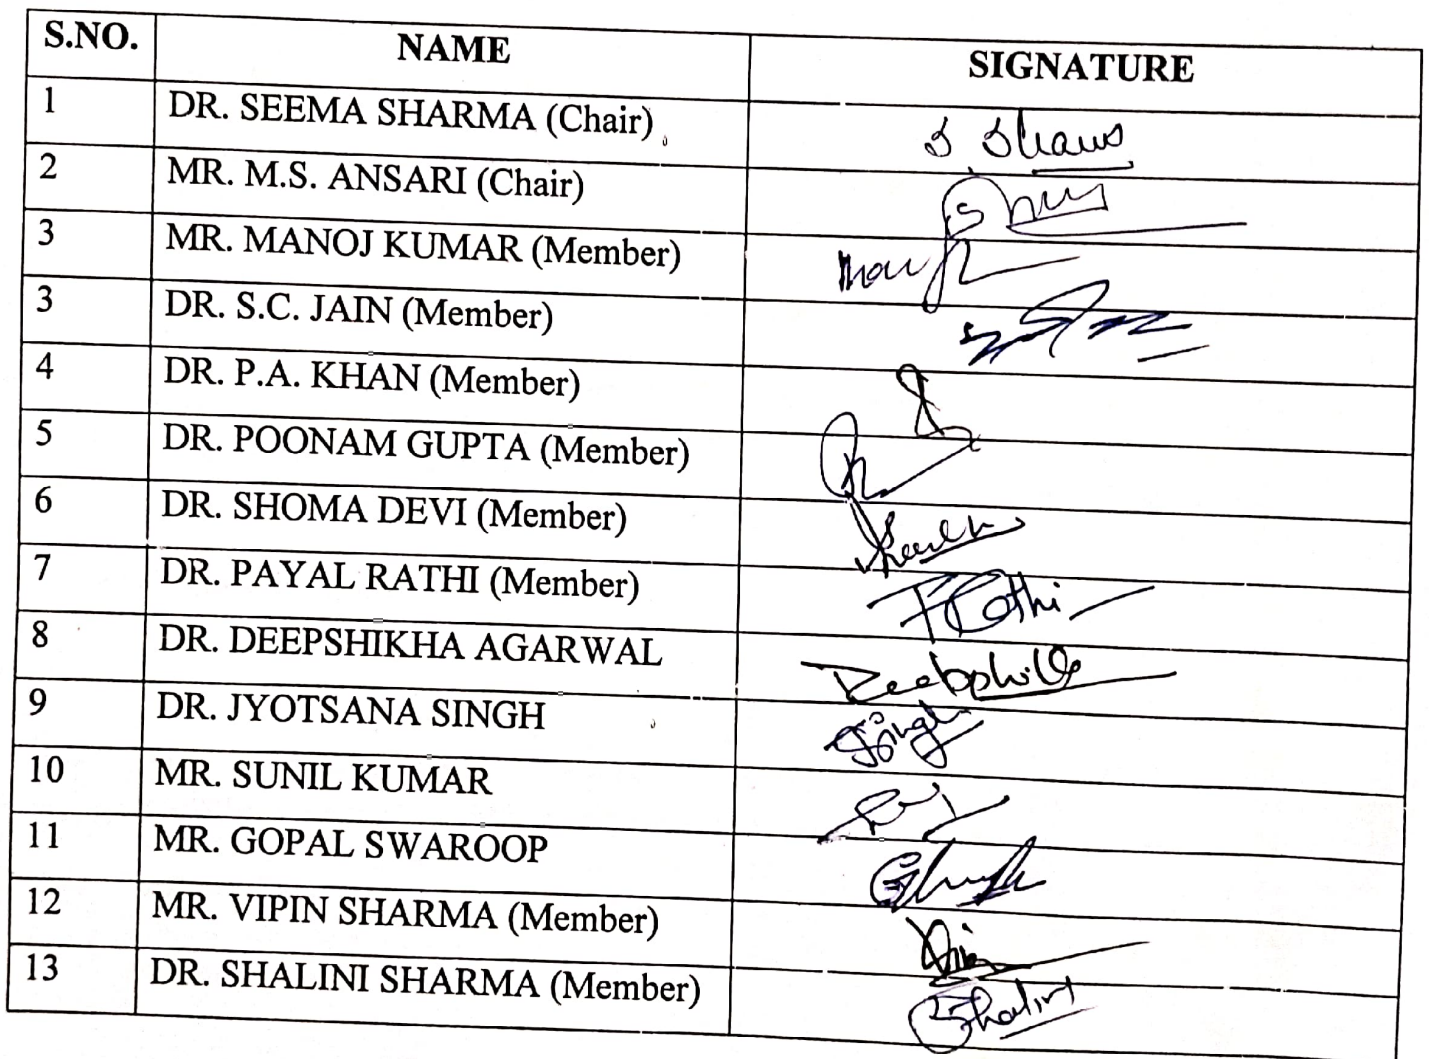 S.NO. NAME SIGNATURE
1 DR. SEEMA SHARMA (Chair) S Sharma
2 MR. M.S. ANSARI (Chair)
3 MR. MANOJ KUMAR (Member) Manoj
3 DR. S.C. JAIN (Member)
4 DR. P.A. KHAN (Member)
5 DR. POONAM GUPTA (Member)
6 DR. SHOMA DEVI (Member)
7 DR. PAYAL RATHI (Member) P Rathi
8 DR. DEEPSHIKHA AGARWAL Deepshikha
9 DR. JYOTSANA SINGH Singh
10 MR. SUNIL KUMAR
11 MR. GOPAL SWAROOP
12 MR. VIPIN SHARMA (Member)
13 DR. SHALINI SHARMA (Member) Shalini